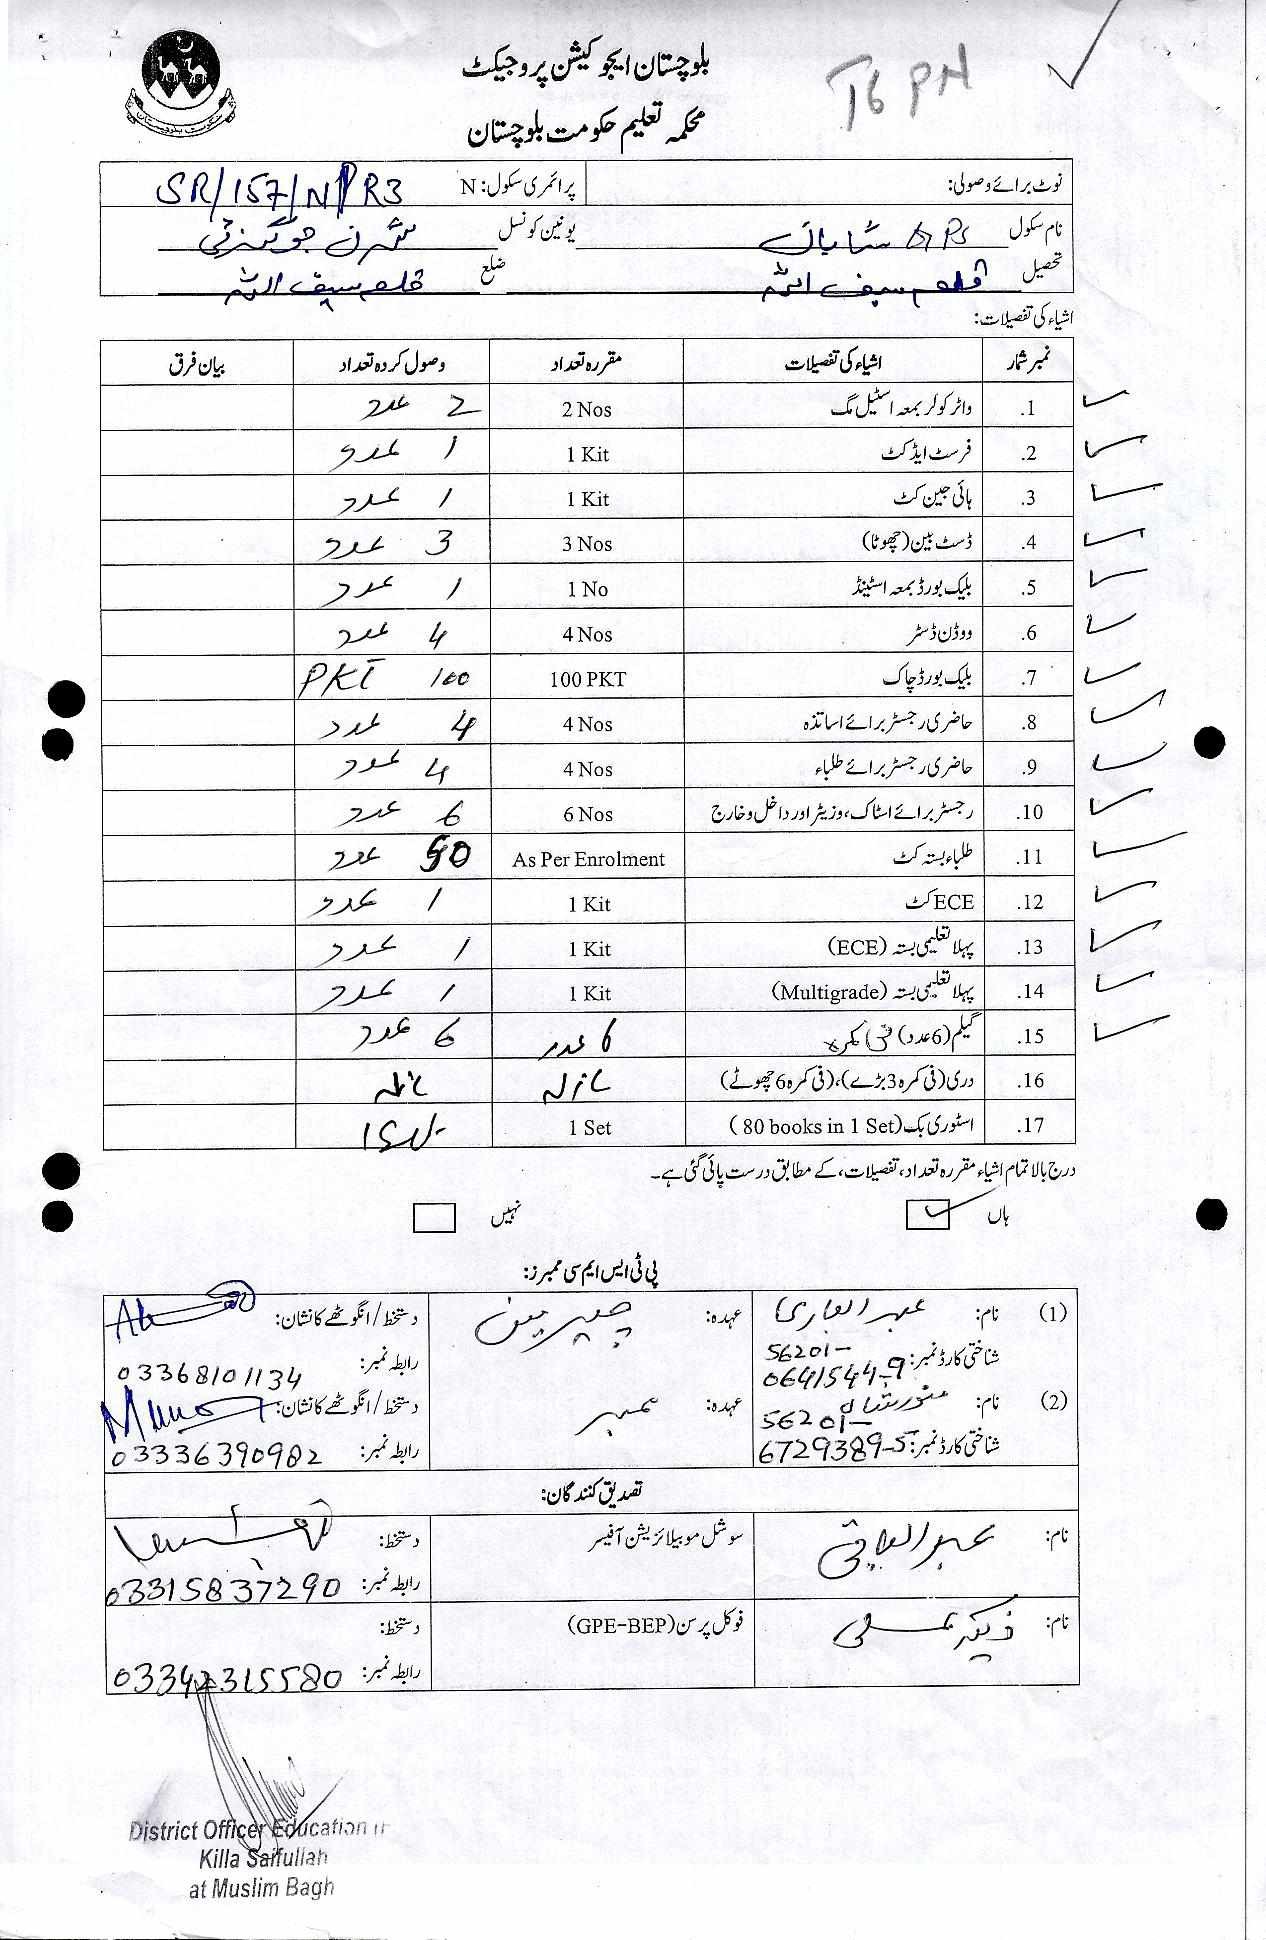 بلوچستان ایجوکیشن پروجیکٹ
محکمہ تعلیم حکومت بلوچستان
T6 PN
نوٹ برائے وصولی: پرائمری سکول: N SR/157/N/PR3
نام سکول GPS یونین کونسل
تحصیل قلعہ سیف اللہ ضلع قلعہ سیف اللہ
اشیاء کی تفصیلات:
نمبر شمار اشیاء کی تفصیلات مقررہ تعداد وصول کردہ تعداد بیان فرق
1. واٹر کولر بمعہ اسٹیل مگ 2 Nos 2 عدد
2. فرسٹ ایڈ کٹ 1 Kit 1 عدد
3. ہائی جین کٹ 1 Kit 1 عدد
4. ڈسٹ بین (چھوٹا) 3 Nos 3 عدد
5. بلیک بورڈ بمعہ اسٹینڈ 1 No 1 عدد
6. ووڈن ڈسٹر 4 Nos 4 عدد
7. بلیک بورڈ چاک 100 PKT 100 PKT
8. حاضری رجسٹر برائے اساتذہ 4 Nos 4 عدد
9. حاضری رجسٹر برائے طلباء 4 Nos 4 عدد
10. رجسٹر برائے اسٹاک، وزیٹر اور داخل و خارج 6 Nos 6 عدد
11. طلباء بستہ کٹ As Per Enrolment 50 عدد
12. ECE کٹ 1 Kit 1 عدد
13. پہلا تعلیمی بستہ (ECE) 1 Kit 1 عدد
14. پہلا تعلیمی بستہ (Multigrade) 1 Kit 1 عدد
15. گیلم (6 عدد) فی کمرہ 6 عدد 6 عدد
16. دری (فی کمرہ 3 بڑے)، (فی کمرہ 6 چھوٹے)
17. اسٹوری بک (80 books in 1 Set) 1 Set
درج بالا تمام اشیاء مقررہ تعداد، تفصیلات، کے مطابق درست پائی گئی ہے۔
ہاں نہیں
پی ٹی ایس ایم سی ممبرز:
(1) نام: عبدالباری عہدہ: چیئرمین دستخط/انگوٹھے کا نشان:
شناختی کارڈ نمبر: 56201-0641544-9 رابطہ نمبر: 03368101134
(2) نام: منور شاہ عہدہ: ممبر دستخط/انگوٹھے کا نشان:
شناختی کارڈ نمبر: 56201-6729389-5 رابطہ نمبر: 03336390982
تصدیق کنندگان:
نام: عبدالباقی سوشل موبیلائزیشن آفیسر دستخط:
رابطہ نمبر: 03315837290
نام: فوکل پرسن (GPE-BEP) دستخط:
رابطہ نمبر: 03342315580
District Officer Education
Killa Saifullah
at Muslim Bagh